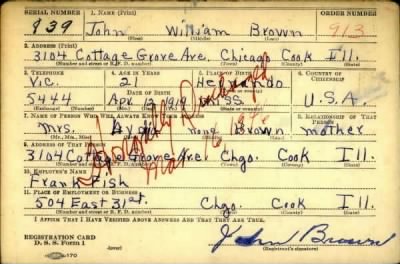 SERIAL NUMBER 1. NAME (Print) ORDER NUMBER
839 John William Brown 913
(First) (Middle) (Last)
2. ADDRESS (Print)
3104 Cottage Grove Ave. Chicago Cook Ill.
(Number and street or R. F. D. number) (Town) (County) (State)
3. TELEPHONE 4. AGE IN YEARS 5. PLACE OF BIRTH 6. COUNTRY OF CITIZENSHIP
Vic. 21 Hernando
DATE OF BIRTH
5444 Apr 12 1919 Miss. U.S.A.
7. NAME OF PERSON WHO WILL ALWAYS KNOW YOUR ADDRESS 8. RELATIONSHIP OF THAT PERSON
Mrs. none Brown mother
(Mr., Mrs., Miss) (First) (Middle) (Last)
9. ADDRESS OF THAT PERSON
3104 Cottage Grove Ave. Chgo. Cook Ill.
(Number and street or R. F. D. number) (Town) (County) (State)
10. EMPLOYER'S NAME
Frank Fish
11. PLACE OF EMPLOYMENT OR BUSINESS
504 East 31st. Chgo. Cook Ill.
(Number and street or R. F. D. number) (Town) (County) (State)
I AFFIRM THAT I HAVE VERIFIED ABOVE ANSWERS AND THAT THEY ARE TRUE.
REGISTRATION CARD
D. S. S. Form 1
John Brown
(Registrant's signature)